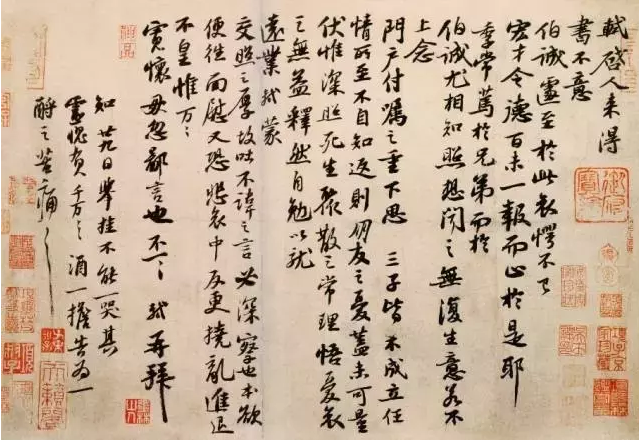 軾啓人来得
書不意
伯誠遽至於此哀愕不已
宏才令德百未一報而止於是耶
季常篤於兄弟而於
伯誠尤相知照想聞之無復生意若不
上念
門户付囑之重下思三子皆不成立任
情所至不自知返則朋友之憂蓋未可量
伏惟深照死生聚散之常理悟憂哀
之無益釋然自勉以就
遠業軾蒙
交照之厚故吐不諱之言必深察也本欲
便往面慰又恐悲哀中反更撓亂進退
不皇惟万〻
寬懷毋忽鄙言也不一〻軾再拜
知廿九日舉挂不能一哭其
靈愧負千万〻酒一擔告为一
酹之苦痛〻